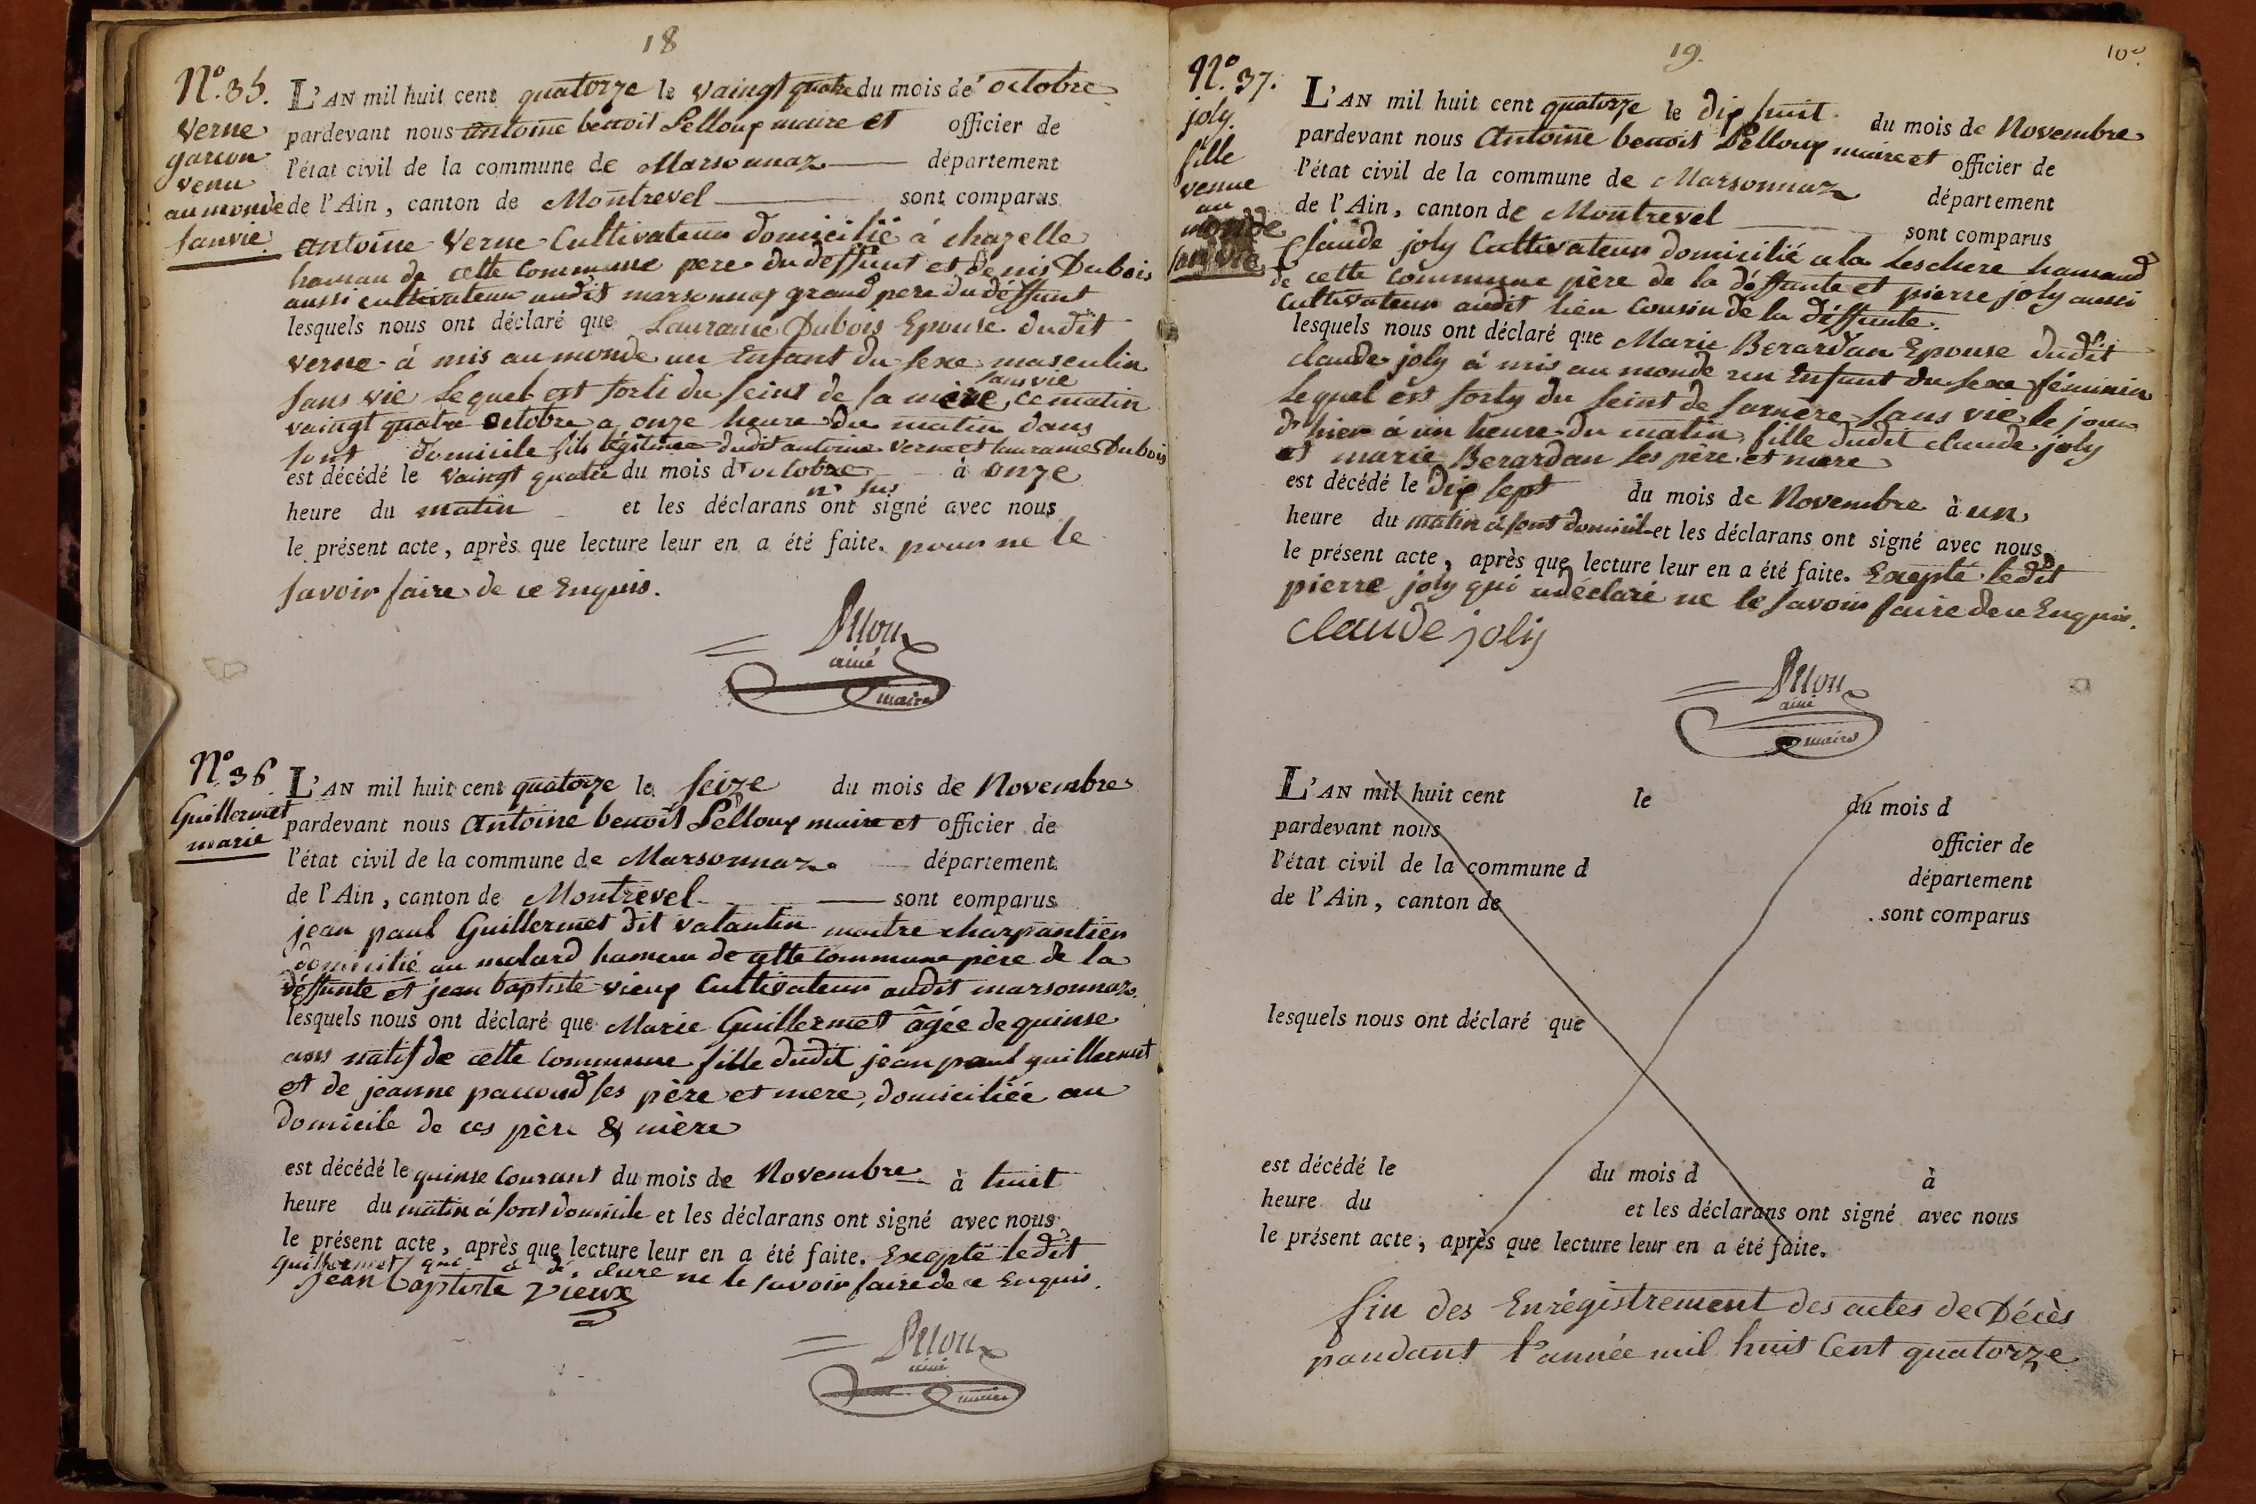 18
N.° 35.
Verne
garcon
venu
au monde
sanvie.
L'AN mil huit cent quatorze le vaingt quatre du mois de octobre
pardevant nous antoine benoit Pelloux maire et officier de
l'état civil de la commune de Marsonnaz département
de l'Ain, canton de Montrevel sont comparus
antoine Verne Cultivateur domicilié á chazelle
hamau de cette Commune pere du deffunt et denis Dubois
aussi cultivateur audit marsonnaz grand pere du déffunt
lesquels nous ont déclaré que Laurance Dubois Epouse dudit
verne á mis au monde un Enfant du sexe masculin
sans vie Lequel est sorti du seint de sa mère sans vie ce matin
vaingt quatre octobre a onze heure du matin dans
sont domicile fils légitime dudit antoine verne et laurance Dubois
est décédé le vaingt quatre du mois d'octobre à onze
heure du matin et les déclarans n'ont sus signé avec nous
le présent acte, après que lecture leur en a été faite. pour ne le
savoir faire de ce Enquis.
Pelloux
ainé
maire
N.° 36
Guillermet
marie
L'AN mil huit cent quatorze le seize du mois de Novembre
pardevant nous antoine benoit Pelloux maire et officier de
l'état civil de la commune de Marsonnaz département
de l'Ain, canton de Montrevel sont comparus
jean paul Guillermet dit valantin maitre charpantier
domicilié au molard hameau de cette commune père de la
déffunte et jean baptiste vieux Cultivateur audit marsonnaz.
lesquels nous ont déclaré que Marie Guillermet âgée de quinse
ans natif de cette Commune fille dudit jean paul guillermet
et de jeanne paccoud ses père et mere, domiciliée au
domicile de ces père & mère
est décédé le quinse Courant du mois de Novembre à huit
heure du matin á sont domicile et les déclarans ont signé avec nous
le présent acte, après que lecture leur en a été faite. Exepté ledit
guillermet qui a dé clare ne le savoir faire de ce Enquis.
Jean baptiste vieux
Pelloux
ainé
maire
19.
N.° 37.
joly.
fille
venue
au
monde
san vie
L'AN mil huit cent quatorze le dix huit du mois de Novembre
pardevant nous Antoine benoit Pelloux maire et officier de
l'état civil de la commune de Marsonnaz département
de l'Ain, canton de Montrevel sont comparus
Claude joly Cultivateur domicilié a la Leschere hamaud
de cette commune père de la déffunte et pierre joly aussi
Cultivateur audit lieu cousin de la déffunte.
lesquels nous ont déclaré que Marie Berardan Epouse dudit
claude joly á mis au monde un Enfant du sexe féminin
Lequel est sorty du seint de sa mère sans vie le jour
d'hier á un heure du matin fille dudit claude joly
et marie Berardan ses père et mere
est décédé le dix sept du mois de Novembre à un
heure du matin á sont domicile et les déclarans ont signé avec nous
le présent acte, après que lecture leur en a été faite. Exepté ledit
pierre joly qui a déclaré ne le savoir faire de ce Enquis.
claude joly
Pelloux
ainé
maire
L'AN mil huit cent le du mois d
pardevant nous officier de
l'état civil de la commune d département
de l'Ain, canton de sont comparus
lesquels nous ont déclaré que
est décédé le du mois d à
heure du et les déclarans ont signé avec nous
le présent acte, après que lecture leur en a été faite.
fin des Enrégistrement des actes de Décès
pandant l'année mil huit Cent quatorze